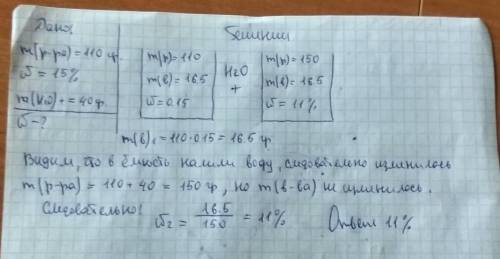 Дано:
m(р-ра)=110 ф.
ω=15%
m(H₂O)+=40ф.
ω-?
Решение
m(р)=110
m(в)=16.5
ω=0.15
H₂O
+
m(р)=150
m(в)=16.5
ω=11%
m(в)₁=110·015=16.5 ф
Видим, что в ёмкость налили воду, следовательно изменилось
m(р-ра)=110+40=150ф, но m(в-ва) не изменилось.
Следовательно:
ω₂=16.5/150=11%
Ответ 11%